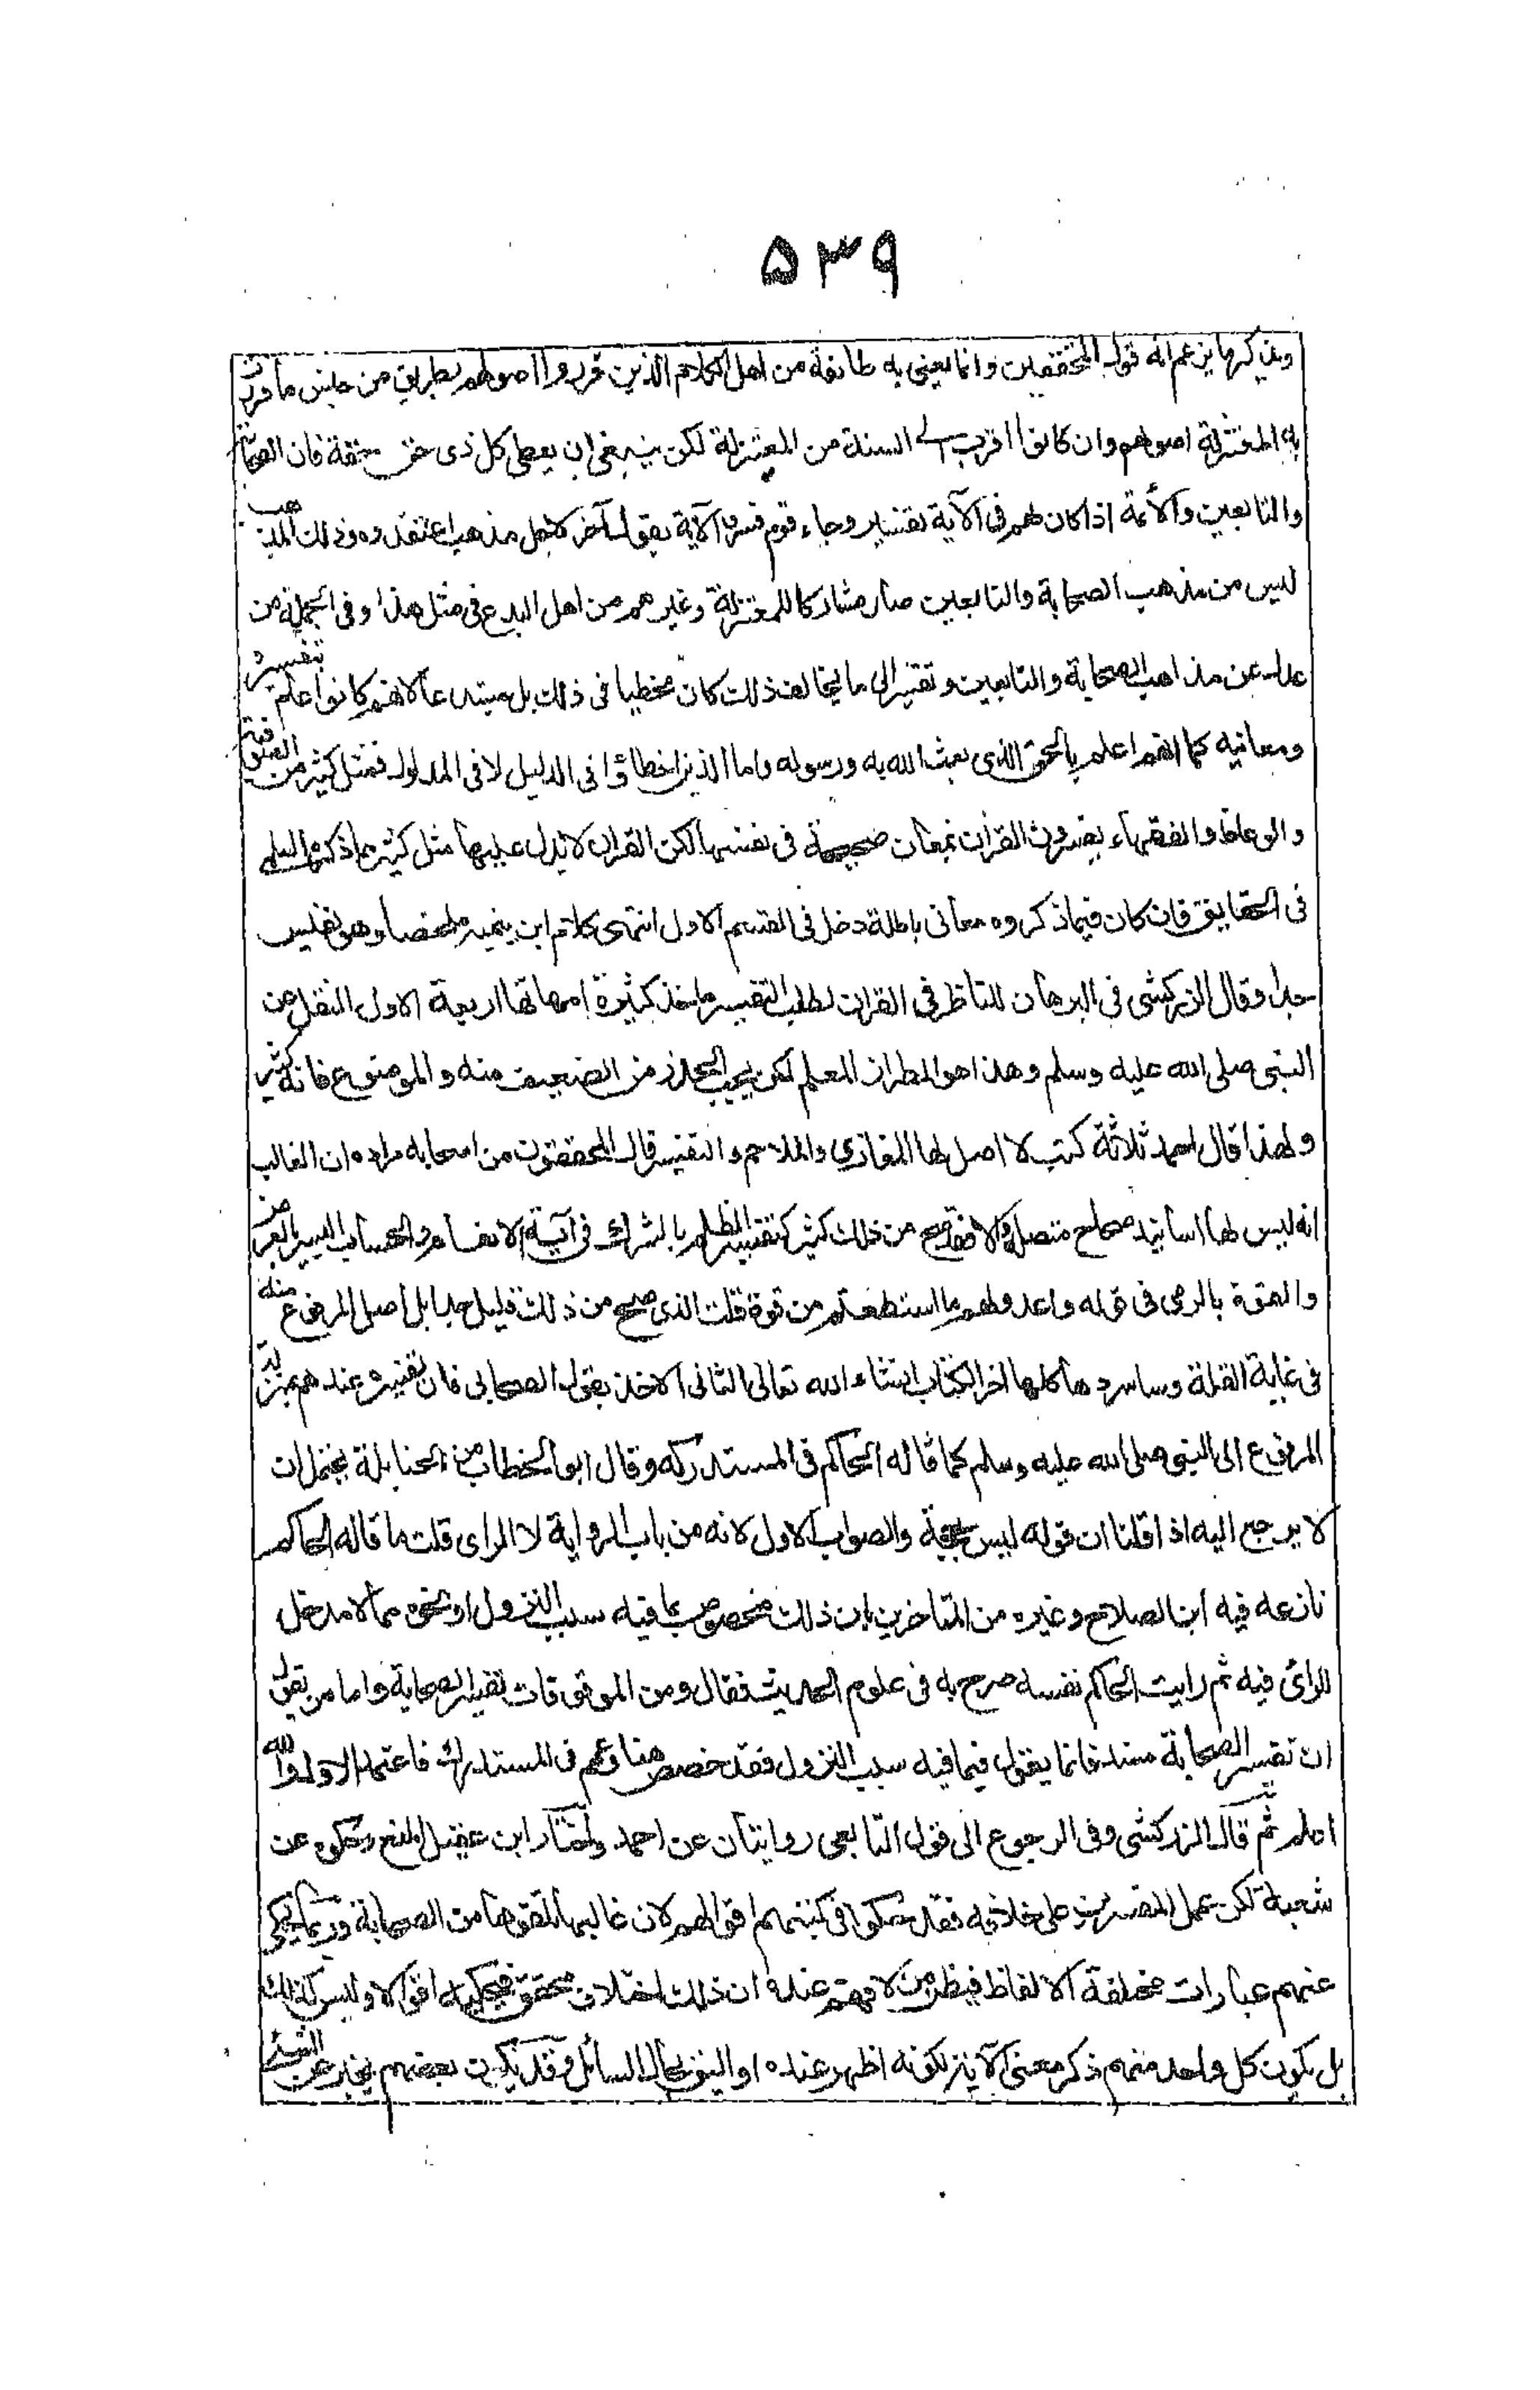 ٥٣٩
ويذكرها يزعم انه قول المحققين وانما يعنى به طائفة من اهل الكلام الذين قرروا اصولهم بطريق من جنس ما قررت
به المعتزلة اصولهم وان كانوا اقرب الى السنة من المعتزلة لكن ينبغى ان يعطى كل ذى حق حقه فان الصحابة
والتابعين والأئمة اذا كان لهم فى الآية تفسير وجاء قوم فسروا الآية بقول آخر لاجل مذهب اعتقدوه وذلك المذهب
ليس من مذهب الصحابة والتابعين صار مشاركا للمعتزلة وغيرهم من اهل البدع فى مثل هذا وفى الجملة من
عدل عن مذاهب الصحابة والتابعين وتفسيرهم الى ما يخالف ذلك كان مخطيا فى ذلك بل مبتدعا لانهم كانوا اعلم بتفسيره
ومعانيه كما انهم اعلم بالحق الذى بعث الله به ورسوله واما الذين اخطاؤا فى الدليل لا فى المدلول فمثل كثير من الصوفية
والوعاظ والفقهاء يفسرون القرآن بمعان صحيحة فى نفسها لكن القران لا يدل عليها مثل كثير مما ذكره السلمى
فى الحقايق فان كان فيما ذكروه معانى باطلة دخل فى القسم الاول انتهى كلام ابن تيمية ملخصا وهو نفيس
جدا وقال الزركشى فى البرهان للناظر فى القران لطلب التفسير ماخذ كثيرة امهاتها اربعة الاول النقل عن
النبى صلى الله عليه وسلم وهذا هو الطراز المعلم لكن يجب الحذر من الضعيف منه والموضوع فانه كثير
ولهذا قال احمد ثلاثة كتب لا اصل لها المغازي والملاحم والتفسير قال المحققون من اصحابه مراده ان الغالب
انه ليس لها اسانيد صحاح متصلة والا فقد صح من ذلك كثير كتفسير الظلم بالشرك فى آية الانعام والحساب اليسير بالعرض
والقوة بالرمى فى قوله واعدوا لهم ما استطعتم من قوة قلت الذى صح من ذلك قليل جدا بل اصل المرفوع منه
فى غاية القلة وساسردها كلها آخر الكتاب انشاء الله تعالى الثانى الاخذ بقول الصحابى فان تفسيره عندهم بمنزلة
المرفوع الى النبى صلى الله عليه وسلم كما قاله الحاكم فى المستدركه وقال ابو الخطاب من الحنابلة يحتمل ان
لا يرجع اليه اذا قلنا ان قوله ليس بحجة والصواب الاول لانه من باب الرواية لا الراى قلت ما قاله الحاكم
نازعه فيه ابن الصلاح وغيره من المتاخرين بان ذلك مخصوص بما فيه سبب النزول او نحوه مما لا مدخل
للرائ فيه ثم رايت الحاكم نفسه صرح به فى علوم الحديث فقال ومن الموقوفات تفسير الصحابة واما من يقول
ان تفسير الصحابة مسند فانما يقول فيما فيه سبب النزول فقد خصص هنا وعمم فى المستدرك فاعتمد الاول والله
اعلم ثم قال الزركشى وفى الرجوع الى قول التابعى روايتان عن احمد واختار ابن عقيل المنع وحكوه عن
شعبة لكن عمل المفسرين على خلافه فقد حكوا فى كتبهم اقوالهم لان غالبها تلقوها من الصحابة وربما يحكى
عنهم عبارات مختلفة الالفاظ فيظن من لا فهم عنده ان ذلك اختلاف محقق فيحكيه اقوالا وليس كذلك
بل يكون كل واحد منهم ذكر معنى الآية لكونه اظهر عنده او اليق بحال السائل وقد يكون بعضهم يخبر عن الشئ